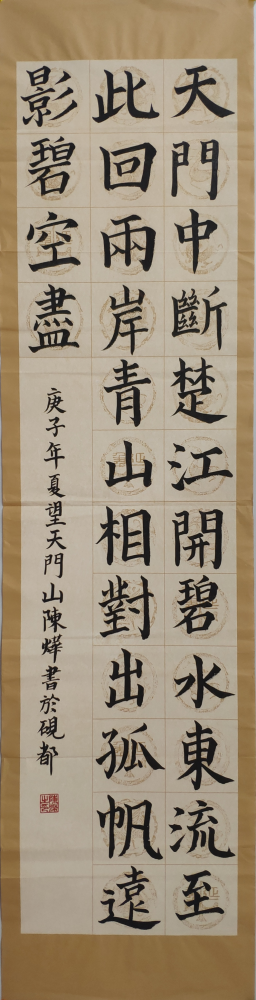 天門中斷楚江開碧水東流至
此回兩岸青山相對出孤帆遠
影碧空盡
庚子年夏望天門山陳燁書於硯都